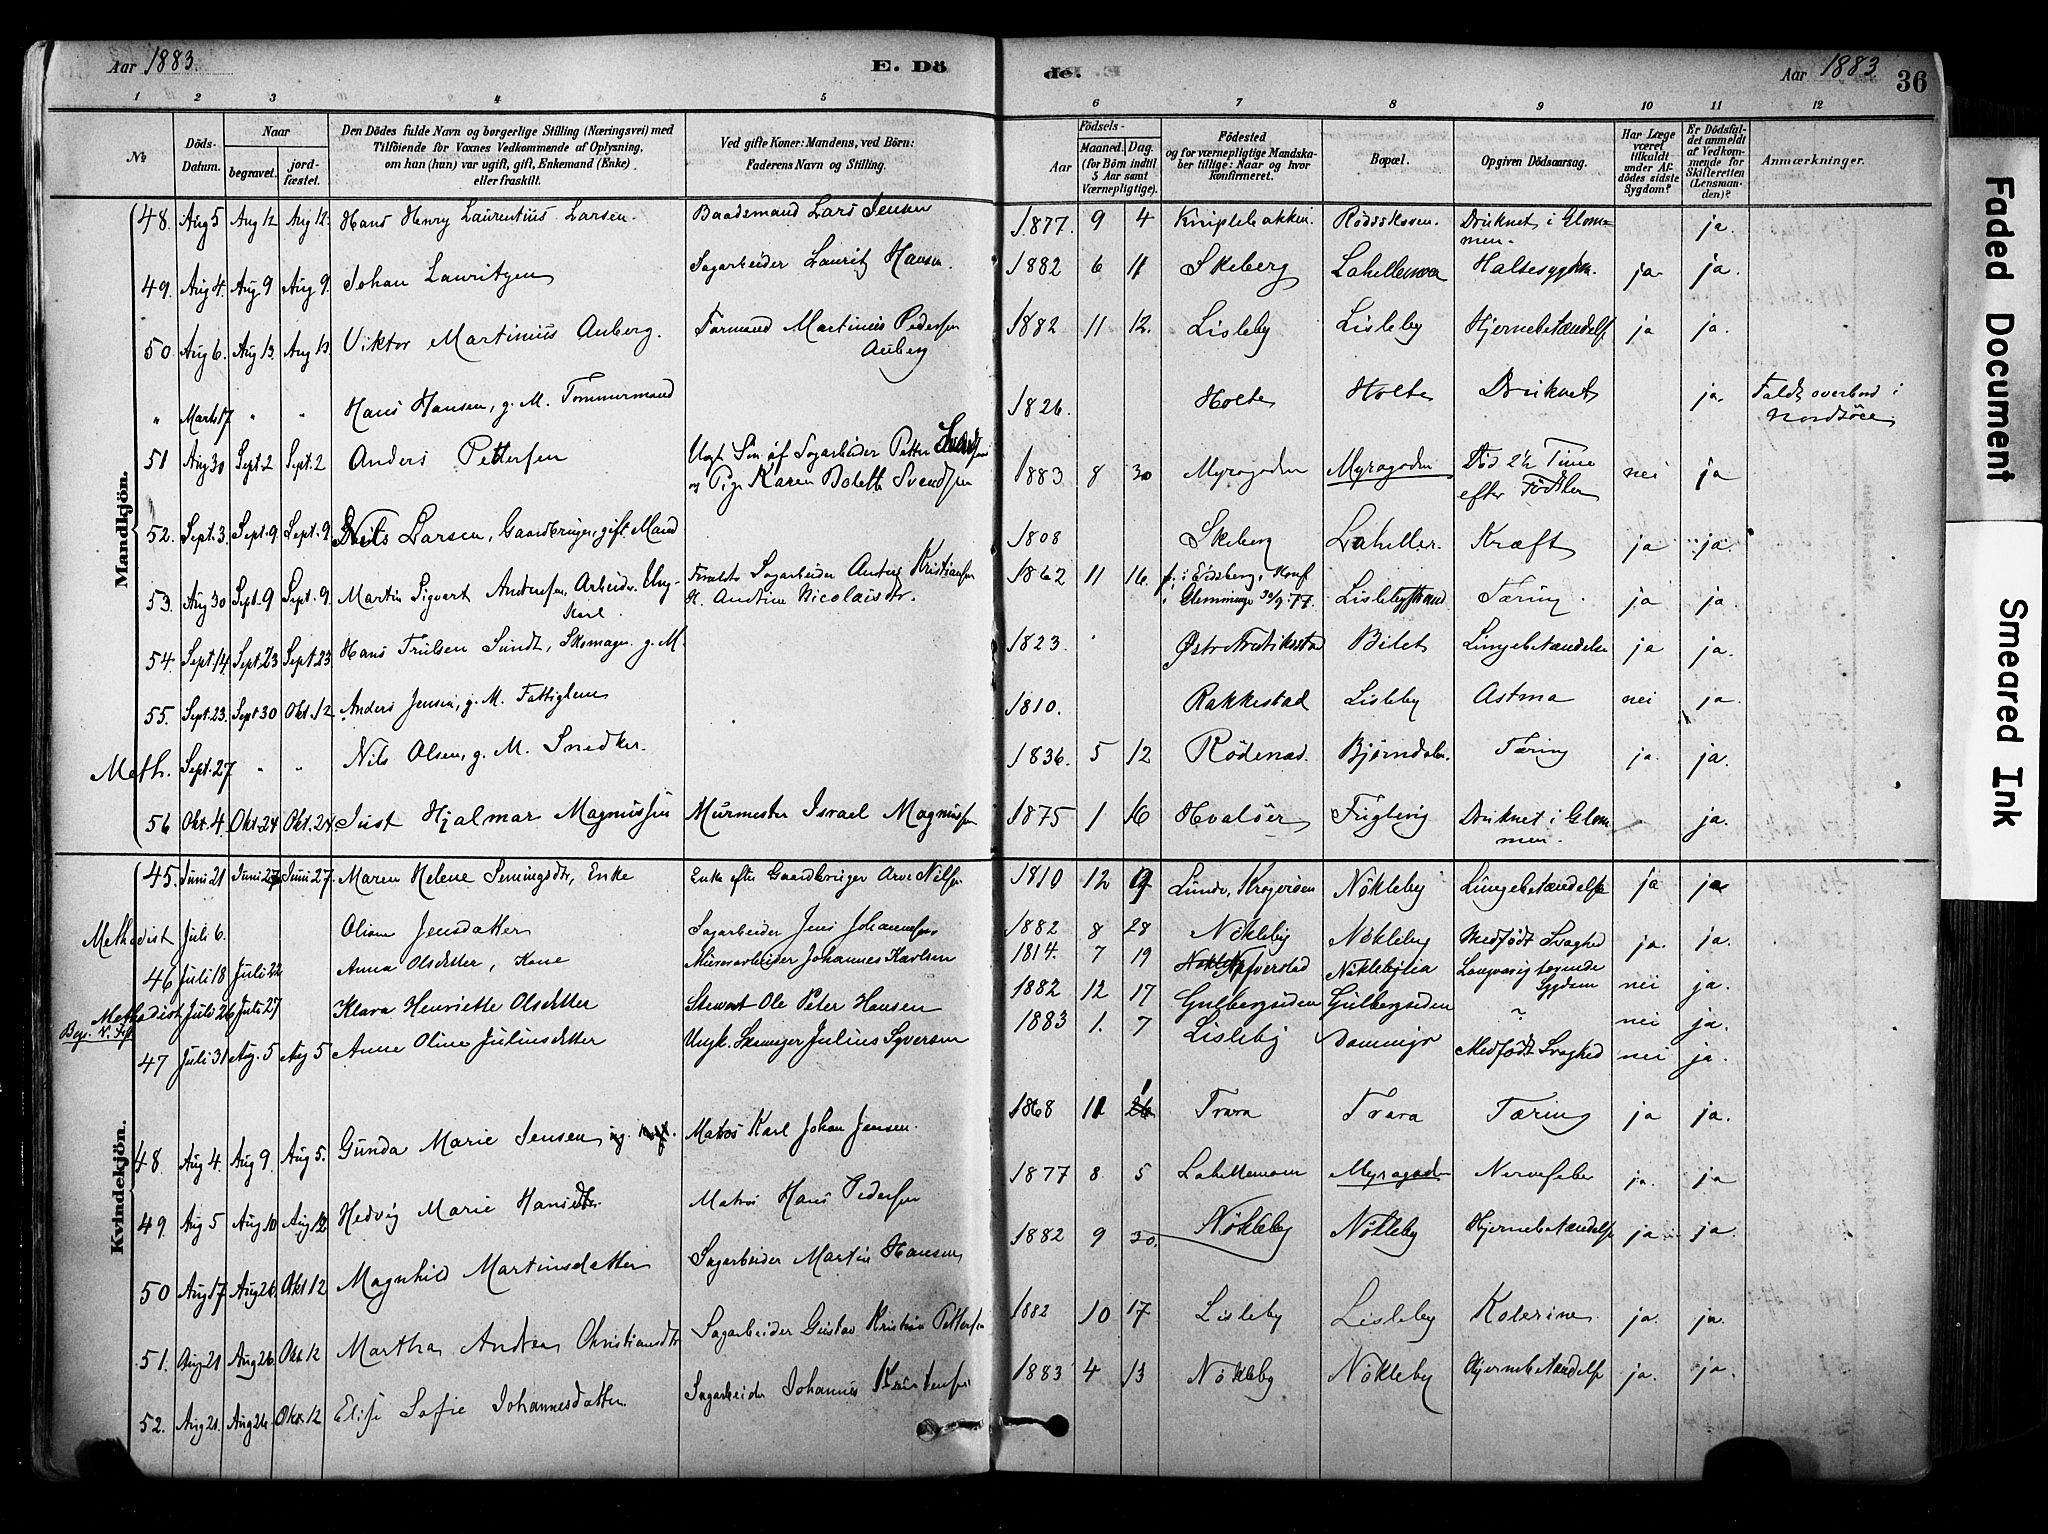 Aar 1883. E. Dö de. Aar 1883 36
1 2 3 4 5 6 7 8 9 10 11 12
No. Döds-Datum. Naar begravet. jordfæstet. Den Dödes fulde Navn og borgerlige Stilling (Næringsvei) med Tilföiende for Voxnes Vedkommende af Oplysning, om han (hun) var ugift, gift, Enkemand (Enke) eller fraskilt. Ved gifte Koner: Mandens, ved Börn: Faderens Navn og Stilling. Födsels- Aar Maaned. Dag. (for Börn indtil 5 Aar samt Værnepligtige). Födested og for værnepligtige Mandskaber tillige: Naar og hvor konfirmeret. Bopæl. Opgiven Dödsaarsag. Har Læge været tilkaldt under Afdödes sidste Sygdom? Er Dödsfaldet anmeldt af Vedkommende for Skifteretten (Lensmanden)? Anmærkninger.
Mandkjön.
48. Aug 5 Aug 12 Aug 12. Hans Henry Laurentius Larsen. Baadsmand Lars Jensen 1877. 9 4 Kniplebakken. Rödsskoven. Druknet i Glommen. ja.
49. Aug 4. Aug. 9 Aug 9. Johan Lauritzen Sagarbeider Lauritz Hansen. 1882 6 11 Skeberg Lahellemoen Halsesygdom. ja. ja.
50. Aug 6. Aug 13. Aug 13. Viktor Martinius Auberg. Formand Martinius Pedersen Auberg 1882 11 12. Lisleby Lisleby Hjernebetændelse ja ja.
" Marts 17 " " Hans Hansen, g. M. Tömmermand 1826. Holte Holte Druknet ja. Faldt overbord i Nordsöen
51 Aug 30 Sept. 2 Sept. 2 Anders Pettersen Uægt Sön af Sagarbeider Petter og Pige Karen Bolette Svendsen 1883 8 30 Myragoden Myragoden Död 2½ Time efter Födselen nei ja
52. Sept. 3. Sept. 9 Sept. 9 Nils Larsen, Gaardbruger, gift Mand 1808 Skeberg Laheller. Kræft ja ja.
53. Aug 30 Sept. 9 Sept. 9. Martin Sigvart Andersen, Arbeider. Ungkarl Forældre Sagarbeider Anders Kristiansen H. Andrine Nicolaisdr. 1862 11 16. f. i Eidsberg, Konf i Glemminge 30/9 77. Lislebystrand Tæring. ja ja.
54. Sept. 14. Sept. 23 Sept. 23 Hans Trulsen Sundt, Skomager g. M. 1823. Østre Fredrikstad Bilet Lungebetændelse ja ja.
55. Sept. 23. Sept 30 Okt. 12 Anders Jensen, g. M. Fattiglem 1810. Rakkestad Lisleby Astma nei ja.
Meth. Sept. 27 " " Nils Olsen, g. M. Snedker. 1836. 5 12 Rödenæs Bjørndalen. Tæring ja. ja.
56 Okt. 4. Okt. 24 Okt. 24. Just Hjalmar Magnussen Murmester Israel Magnussen 1875 1 16 Hvalöer Fuglevig Druknet i Glommen. ja.
Kvindekjön.
45. Juni 21 Juni 27 Juni 27. Maren Helene Semingsdtr, Enke Enke efter Gaardbruger Arve Nilsen 1810 12 Lunde, Nökleby Lungebetændelse ja ja
Methodist Juli 6. Oliane Jensdatter Sagarbeider Jens Johannesen 1882 8 28 Nökleby Nökleby Medfödt Svaghed ja. ja.
46 Juli 18 Juli 22 Anna Olsdatter, Kone Murerarbeider Johannes Karlsen 1814. 7 19 Nöklebylia Langvarig tærende Sygdom nei ja.
Methodist Beg. N. Juli 26 Juli 27 Klara Henriette Olsdatter Stewart Ole Peter Hansen 1882 12 17 Gulbergsiden Gulbergsiden ~ nei ja.
47 Juli 31 Aug. 5 Aug 5 Anne Oline Juliusdatter Ungk. Skomager Julius Syversen 1883 1. 7 Lisleby Medfödt Svaghed nei ja.
48 Aug 4. Aug 9. Aug 5. Gunda Marie Jensen Matros Karl Johan Jensen. 1868 11 1 Trara Trara Tæring ja ja.
49. Aug 5 Aug 10 Aug 12 Hedvig Marie Hansdtr Matros Hans Pedersen 1877 8. 5 Lahellemoen Myragoden Nervefeber ja. ja
50 Aug 17 Aug 26. Okt 12 Magnhild Martinsdatter Sagarbeider Martin Hansen 1882 9 30. Nökleby Nökleby Hjernebetændelse ja ja.
51. Aug 21 Aug 26 Okt 12 Martha Andrea Christiansdtr Sagarbeider Gustav Kristian Pettersen 1882 10 17 Lisleby Lisleby Kolerine ja. ja.
52. Aug 21. Aug 26 Okt. 12 Elise Sofie Johannesdatter Sagarbeider Johannes 1883 4 13 Nökleby Nökleby Hjernebetændelse ja. ja.
Faded Document
Smeared Ink